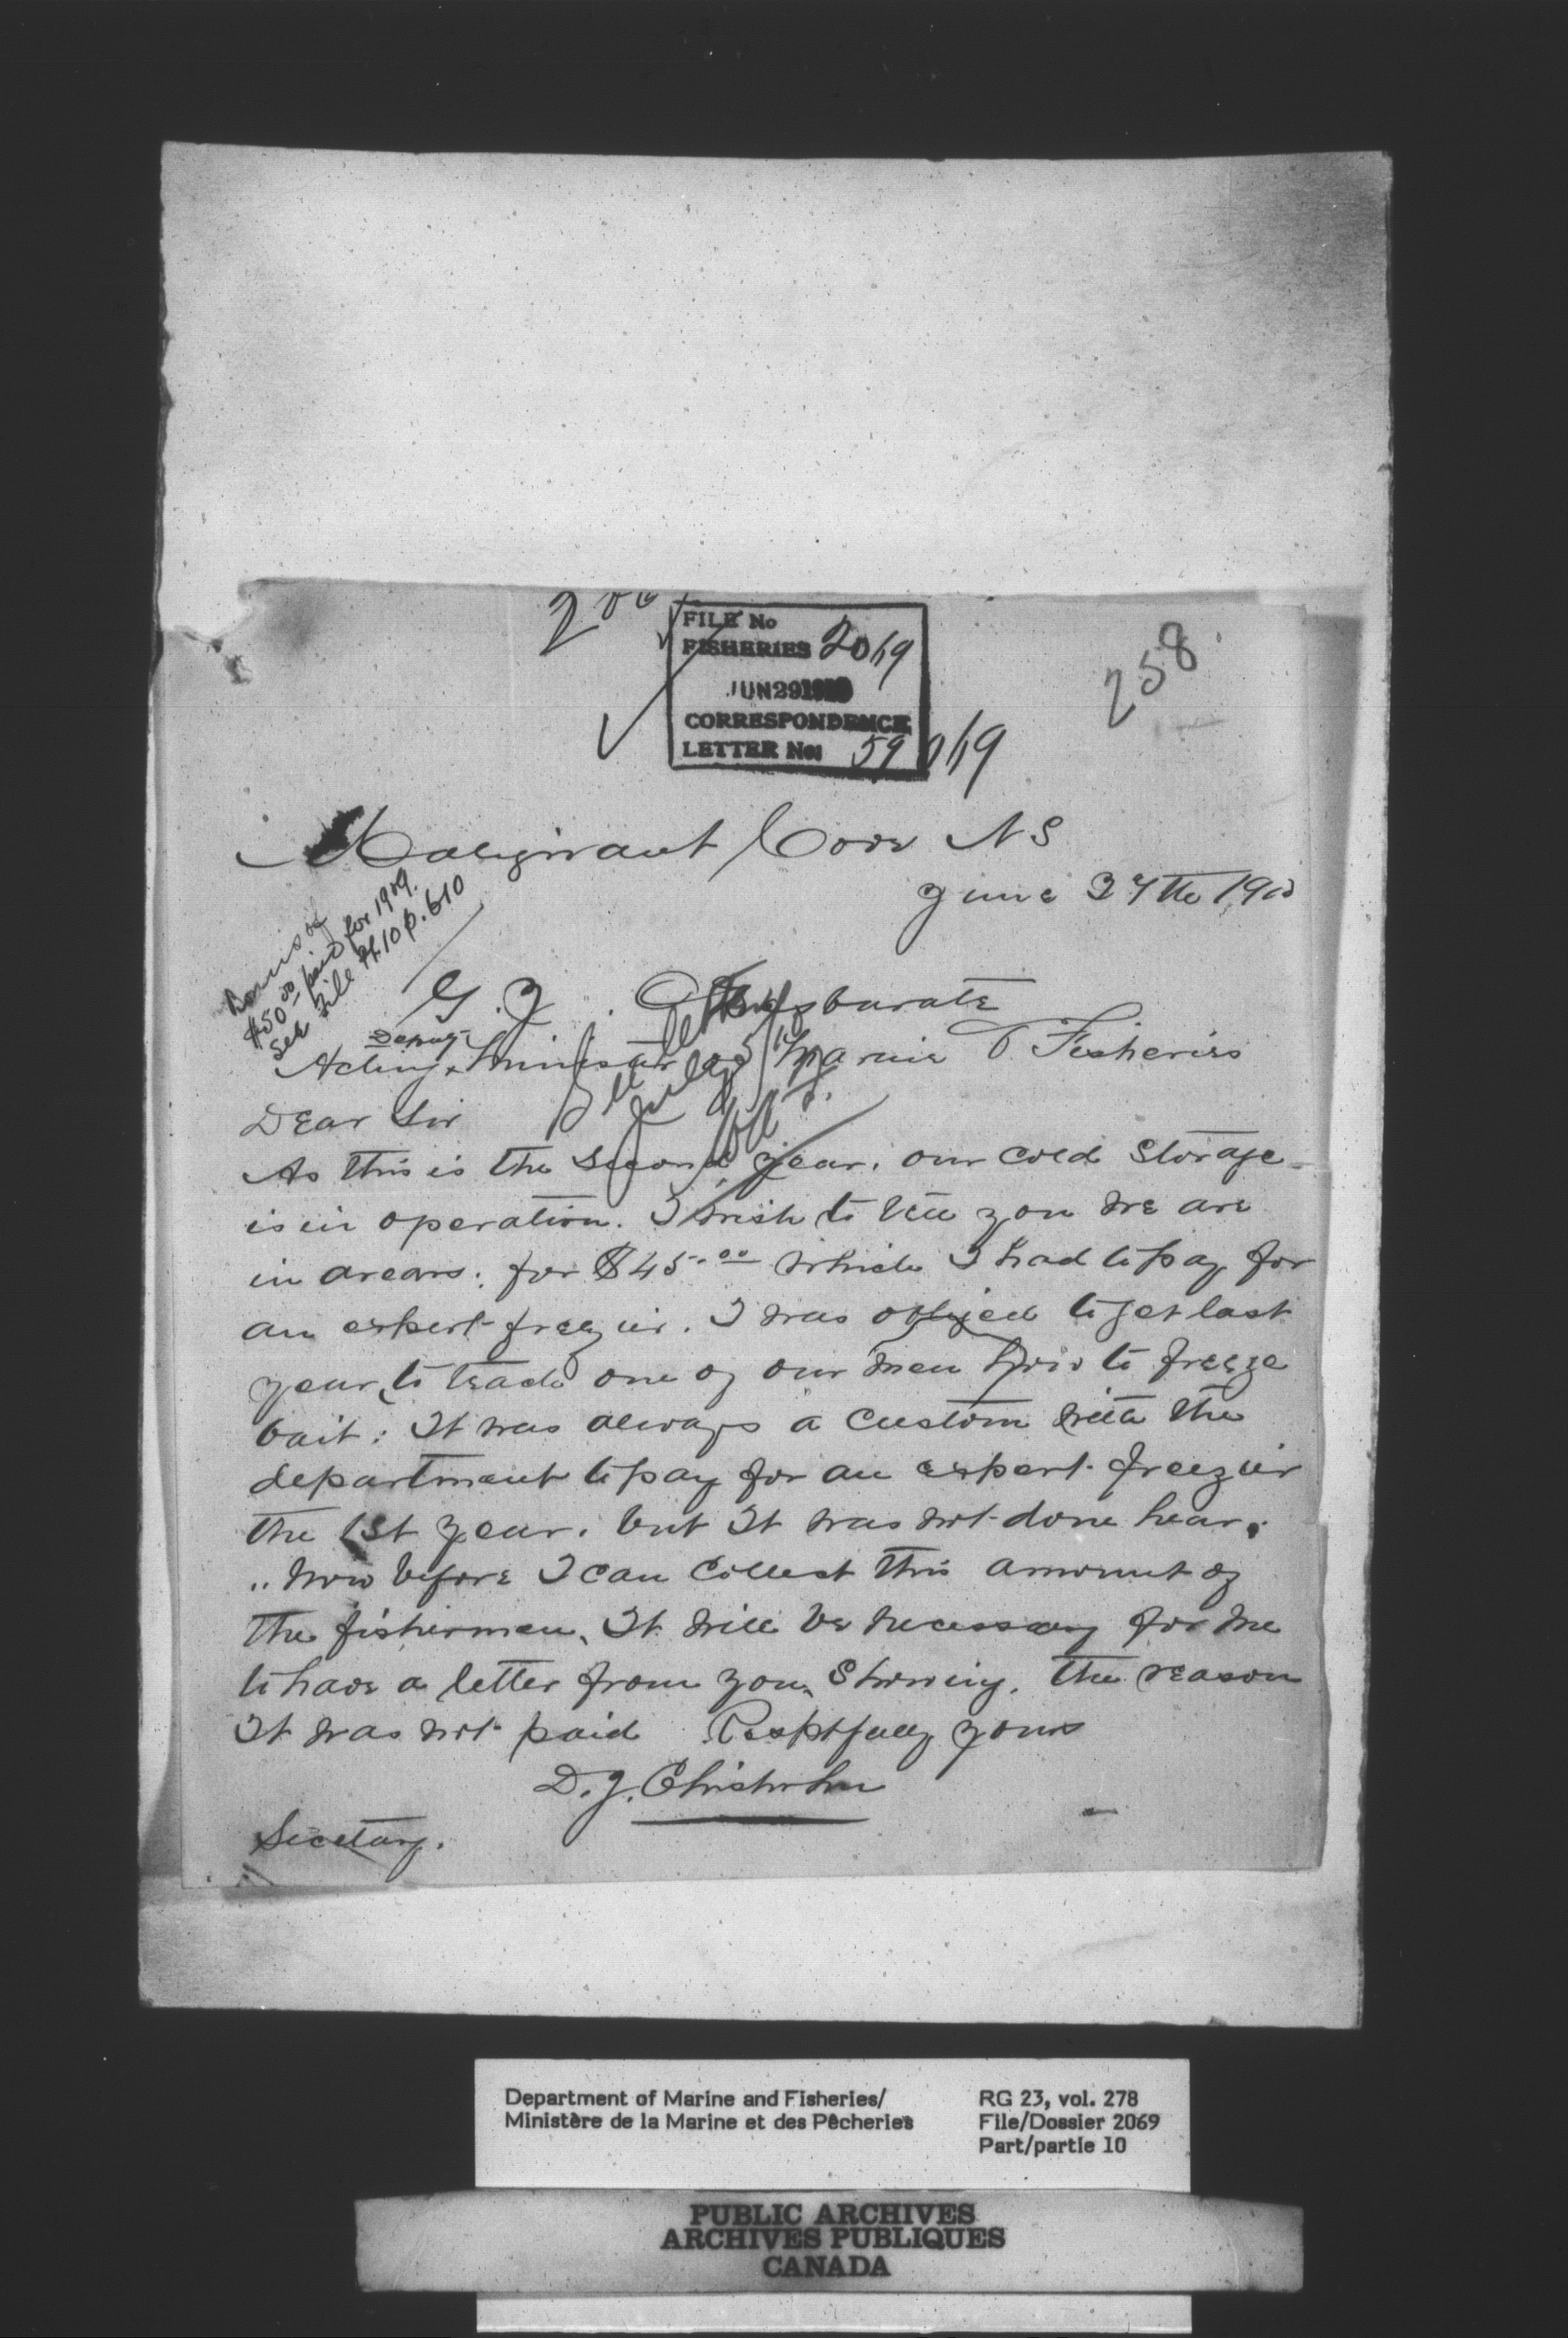 FILE No
FISHERIES 2069
JUN 29 1910
CORRESPONDENCE
LETTER No: 59069
258
Malignant Cove NS
June 27th 1910
Bonus of
$50.00 paid for 1909.
See File Pt. 10 p. 610
G. J. Desbarats
Acting Deputy Minister of Marine & Fisheries
See letter
July 5/10
Dear Sir
As this is the second year. our cold storage
is in operation. I wish to tell you we are
in arears. for $45.00 which I had to pay for
an expert freezier. I was obliged to get last
year, to teach one of our men how to freeze
bait: It was always a custom with the
department to pay for an expert freezier
the 1st year. but It was not done hear.
" now before I can Collect this amount of
the fishermen, It will be necessary for me
to have a letter from you, Showing. the reason
It was not paid Resptfully yours
D. J. Chisholm
Secetary.
Department of Marine and Fisheries/
Ministère de la Marine et des Pêcheries
RG 23, vol. 278
File/Dossier 2069
Part/partie 10
PUBLIC ARCHIVES
ARCHIVES PUBLIQUES
CANADA